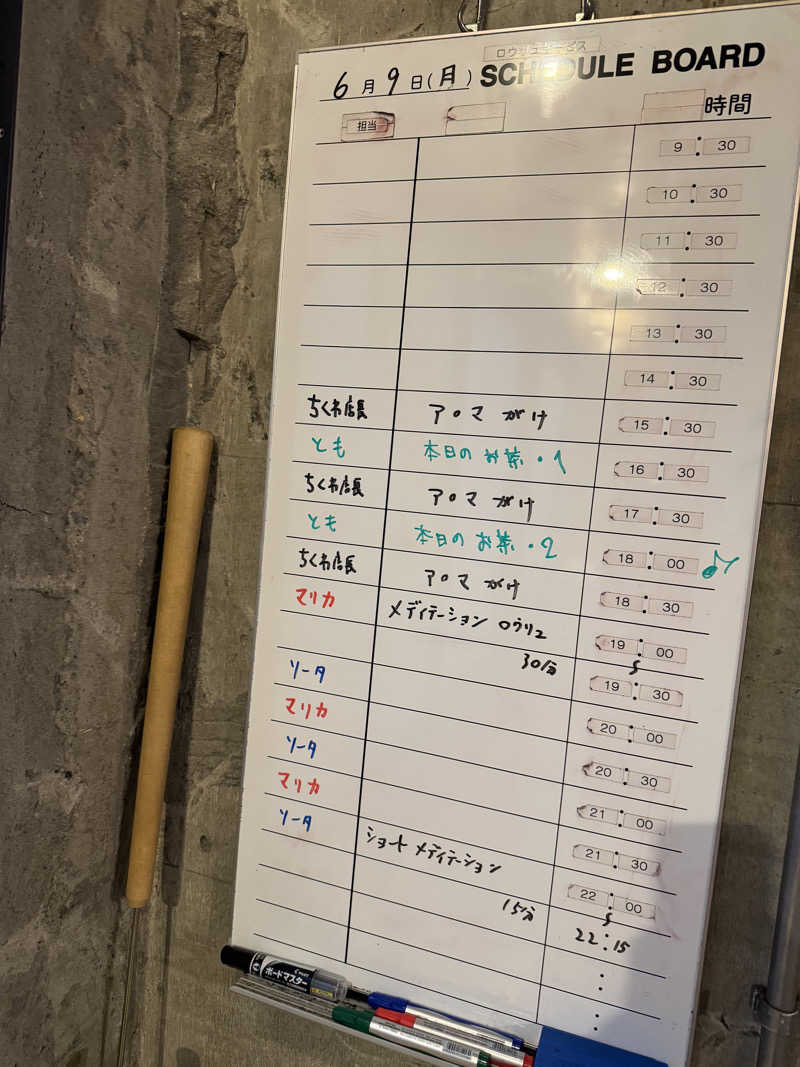 ロウリュサービス
6月9日(月) SCHEDULE BOARD
担当 時間
9:30
10:30
11:30
12:30
13:30
14:30
ちくわ店長 アロマ がけ 15:30
とも 本日の お茶・1 16:30
ちくわ店長 アロマ がけ 17:30
とも 本日の お茶・2 18:00
ちくわ店長 アロマ がけ 18:30
マリカ メディテーション ロウリュ 19:00
30分 19:30
ソータ 20:00
マリカ 20:30
ソータ 21:00
マリカ 21:30
ソータ ショート メディテーション 22:00
15分 22:15
PILOT
ボードマスター